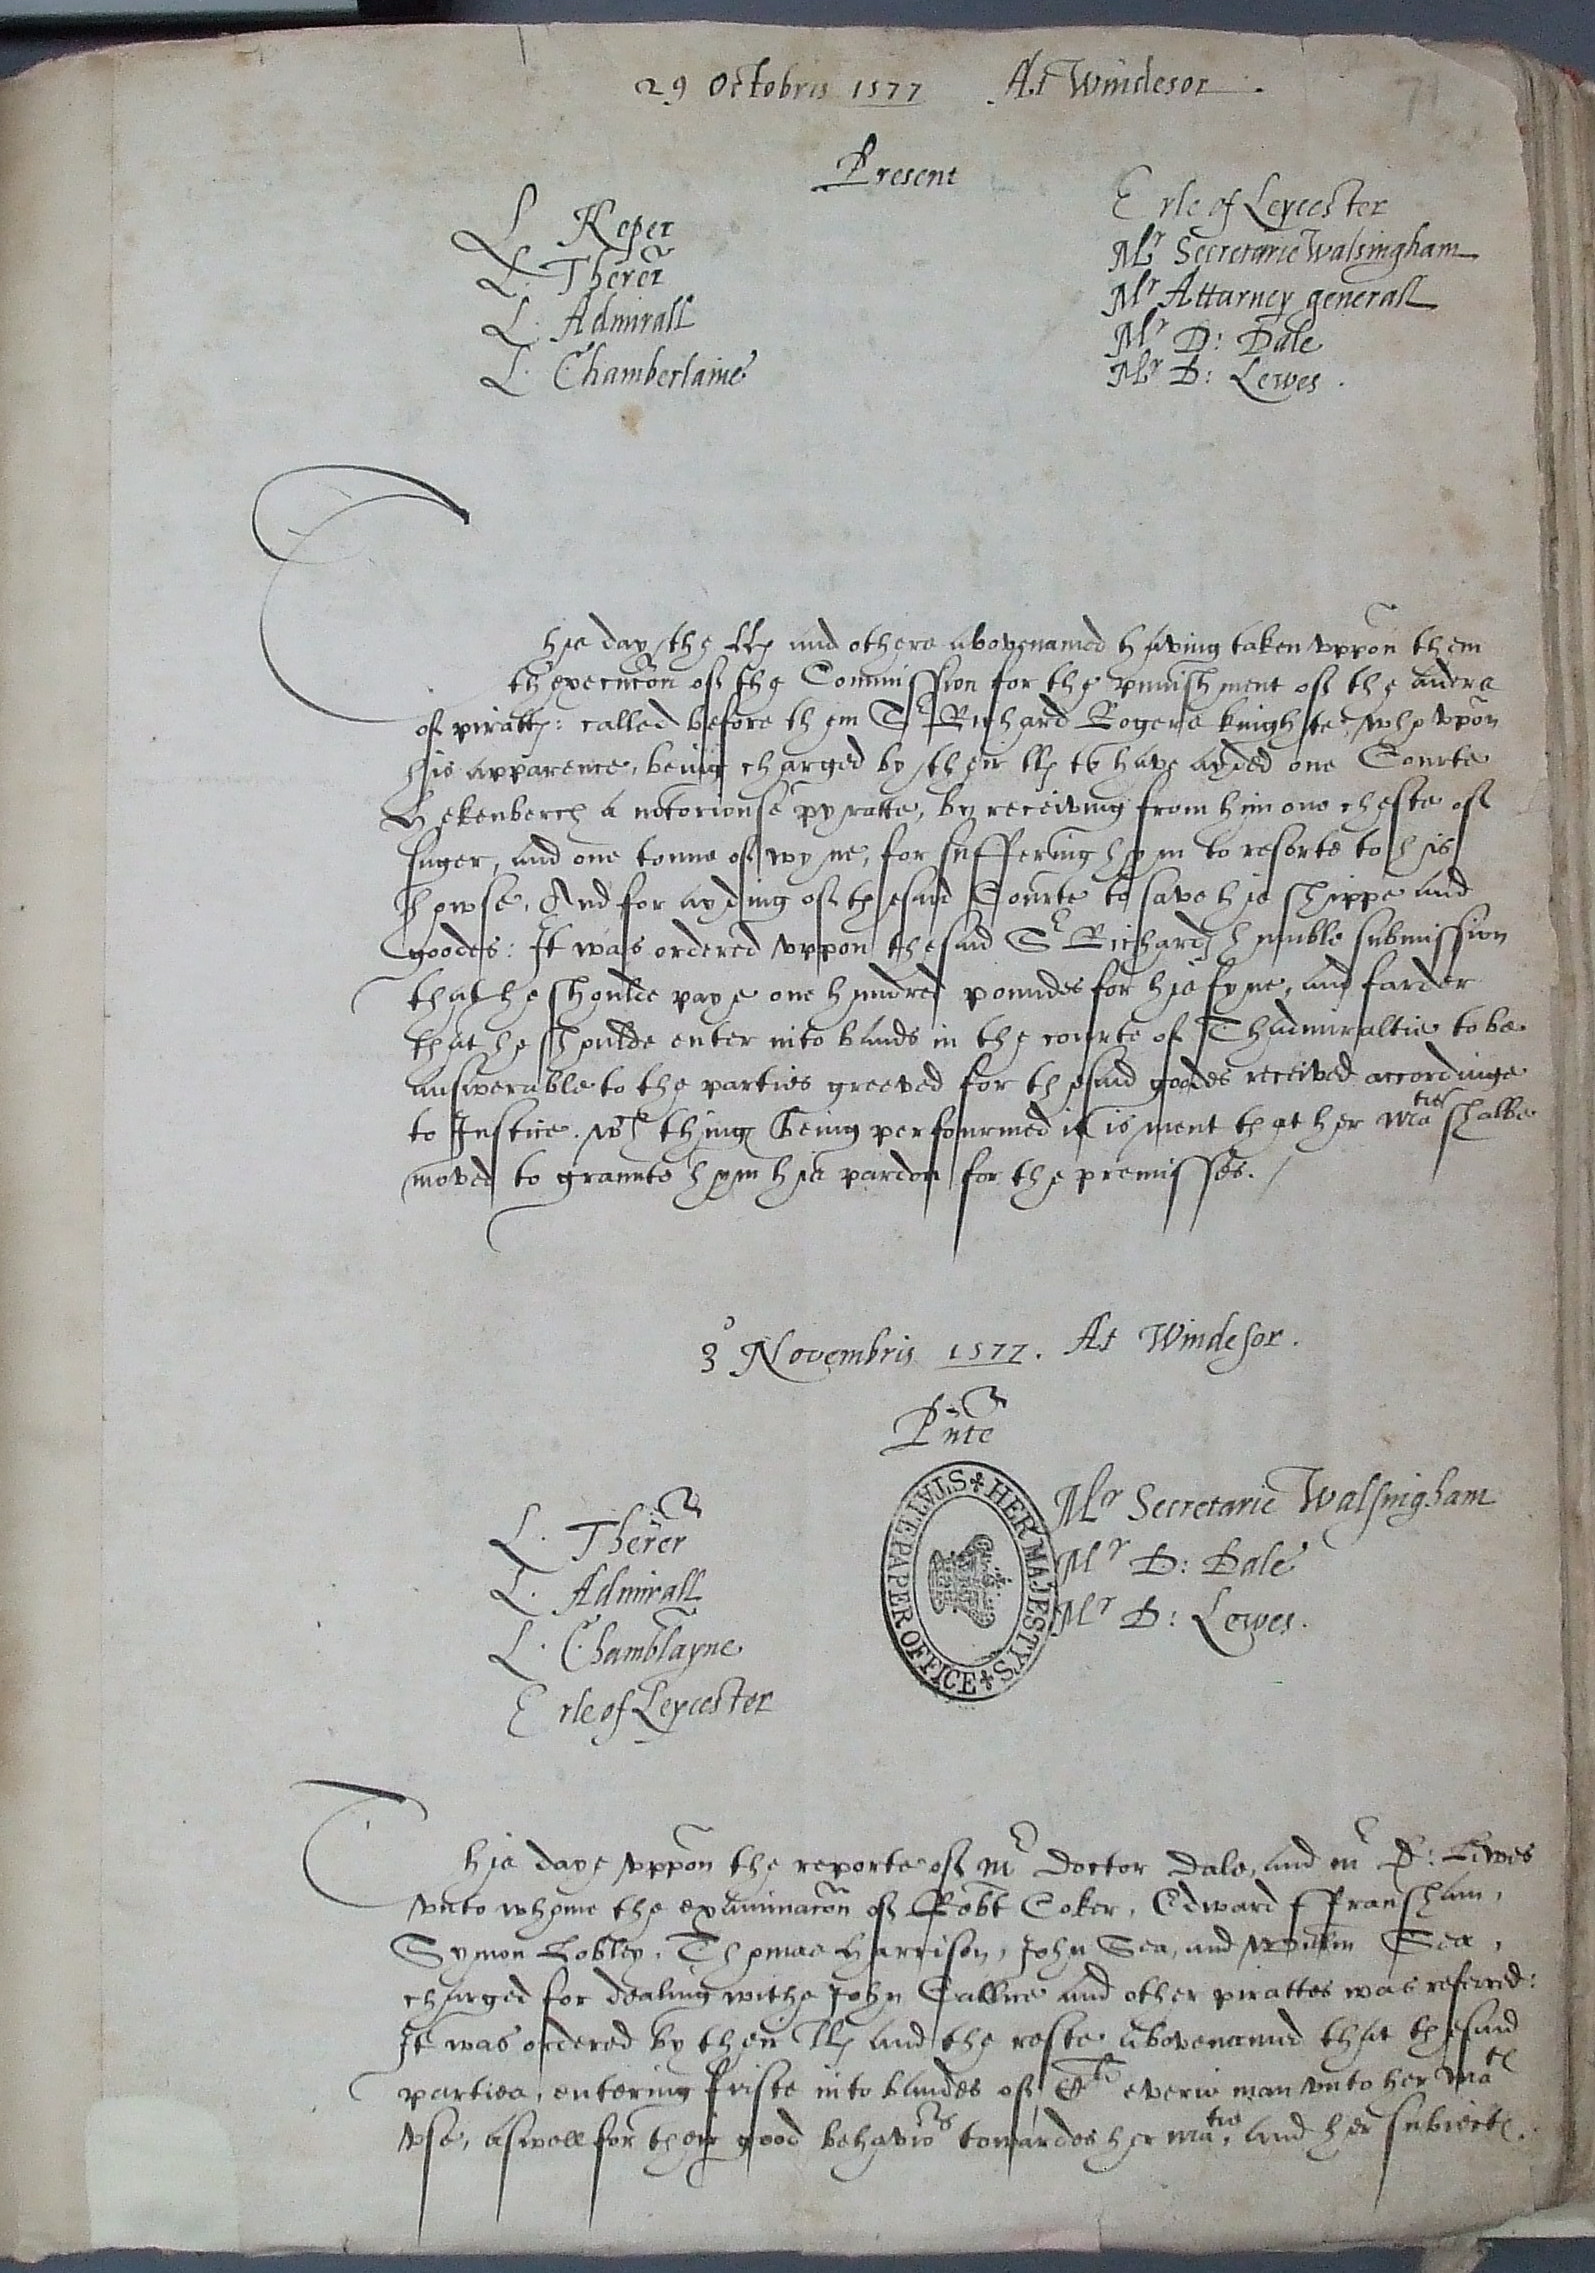 29 Octobris 1577 At Windesor.
71
Present
L. Keper
L. Therer
L. Admirall
L. Chamberlaine
Erle of Leycester
Mr Secretarie Walsingham
Mr Attarney generall
Mr D: Dale
Mr D: Lewes.
This day the LLs and others abovenamed having taken uppon them
thexecucon of the Commission for the punishment of the aiders
of piratts: called before them Sr Richard Rogers knighte, who upon
his apparence, being charged by their LLs to have ayded one Courte
Hekenberch a notoriouse pyratte, by receiving from him one cheste of
suger, and one tonne of wyne, for suffering hym to resorte to his
howse, And for ayding of thesaid Courte to save his shippe and
goodes: It was ordered uppon thesaid Sr Richards humble submission
that he shoulde paye one hundred poundes for his fyne, and farder
that he shoulde enter into bands in the courte of Thadmiraltie to be
answerable to the parties greeved for thesaid goodes received accordinge
to Justice. wch things being perfourmed it is ment that her Matie shalbe
moved to graunte hym his pardon for the premisses.
3o Novembris 1577. At Windesor.
Pnte
L. Therer
L. Admirall
L. Chamblayne
Erle of Leycester
HER MAJESTY'S STATE PAPER OFFICE
Mr Secretarie Walsingham
Mr D: Dale
Mr D: Lewes.
This daye uppon the reporte of Mr Doctor Dale, and Mr D: Lewes
unto whome the examinacon of Robt Coker, Edward ffransham,
Symon Lobley, Thomas Harrison, John Sea, and Sea,
charged for dealing withe John Callice and other pirattes was referred:
It was ordered by their LLs and the reste abovenamed that thesaid
parties, entering firste into bandes of everie man unto her Mats
use, aswell for their good behavior towardes her Matie, and her subiects.